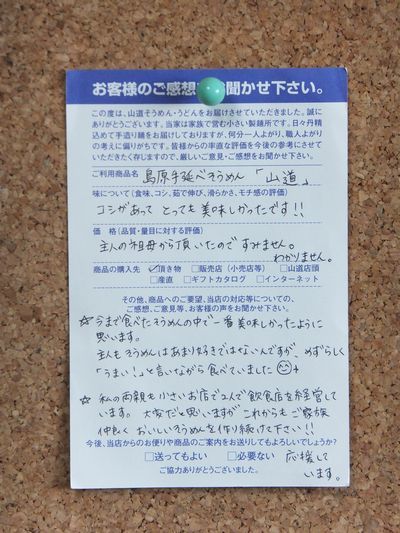 お客様のご感想 聞かせ下さい。
この度は、山道そうめん・うどんをお届けさせていただきました。誠に
ありがとうございます。当家は家族で営む小さい製麺所です。日々丹精
込めて手造り麺をお届けしておりますが、何分一人よがり、職人よがり
の考えに偏りがちです。皆様からの率直な評価を今後の参考にさせて
いただきたく存じますので、厳しいご意見・ご感想をお聞かせ下さい。
ご利用商品名 島原手延べそうめん「山道」
味について(食味、コシ、茹で伸び、滑らかさ、モチ感の評価)
コシがあって とっても美味しかったです!!
価 格(品質・量目に対する評価)
主人の祖母から頂いたので すみません。
わかりません。
商品の購入先 ☑頂き物 □販売店(小売店等) □山道店頭
□産直 □ギフトカタログ □インターネット
その他、商品へのご要望、当店の対応等についての、
ご感想、ご意見等、お客様の声をお聞かせ下さい。
☆今まで食べたそうめんの中で一番美味しかったように
思います。
主人もそうめんはあまり好きではないんですが、めずらしく
「うまい!」と言いながら食べていました
☆ 私の両親も小さいお店で2人で飲食店を経営して
います。 大変だと思いますが これからも ご家族
仲良く おいしいそうめんを作り続けて下さい!!
今後、当店からのお便りや商品のご案内をお送りしてもよろしいでしょうか?
□送ってもよい □必要ない 応援して
ご協力ありがとうございました。 います。